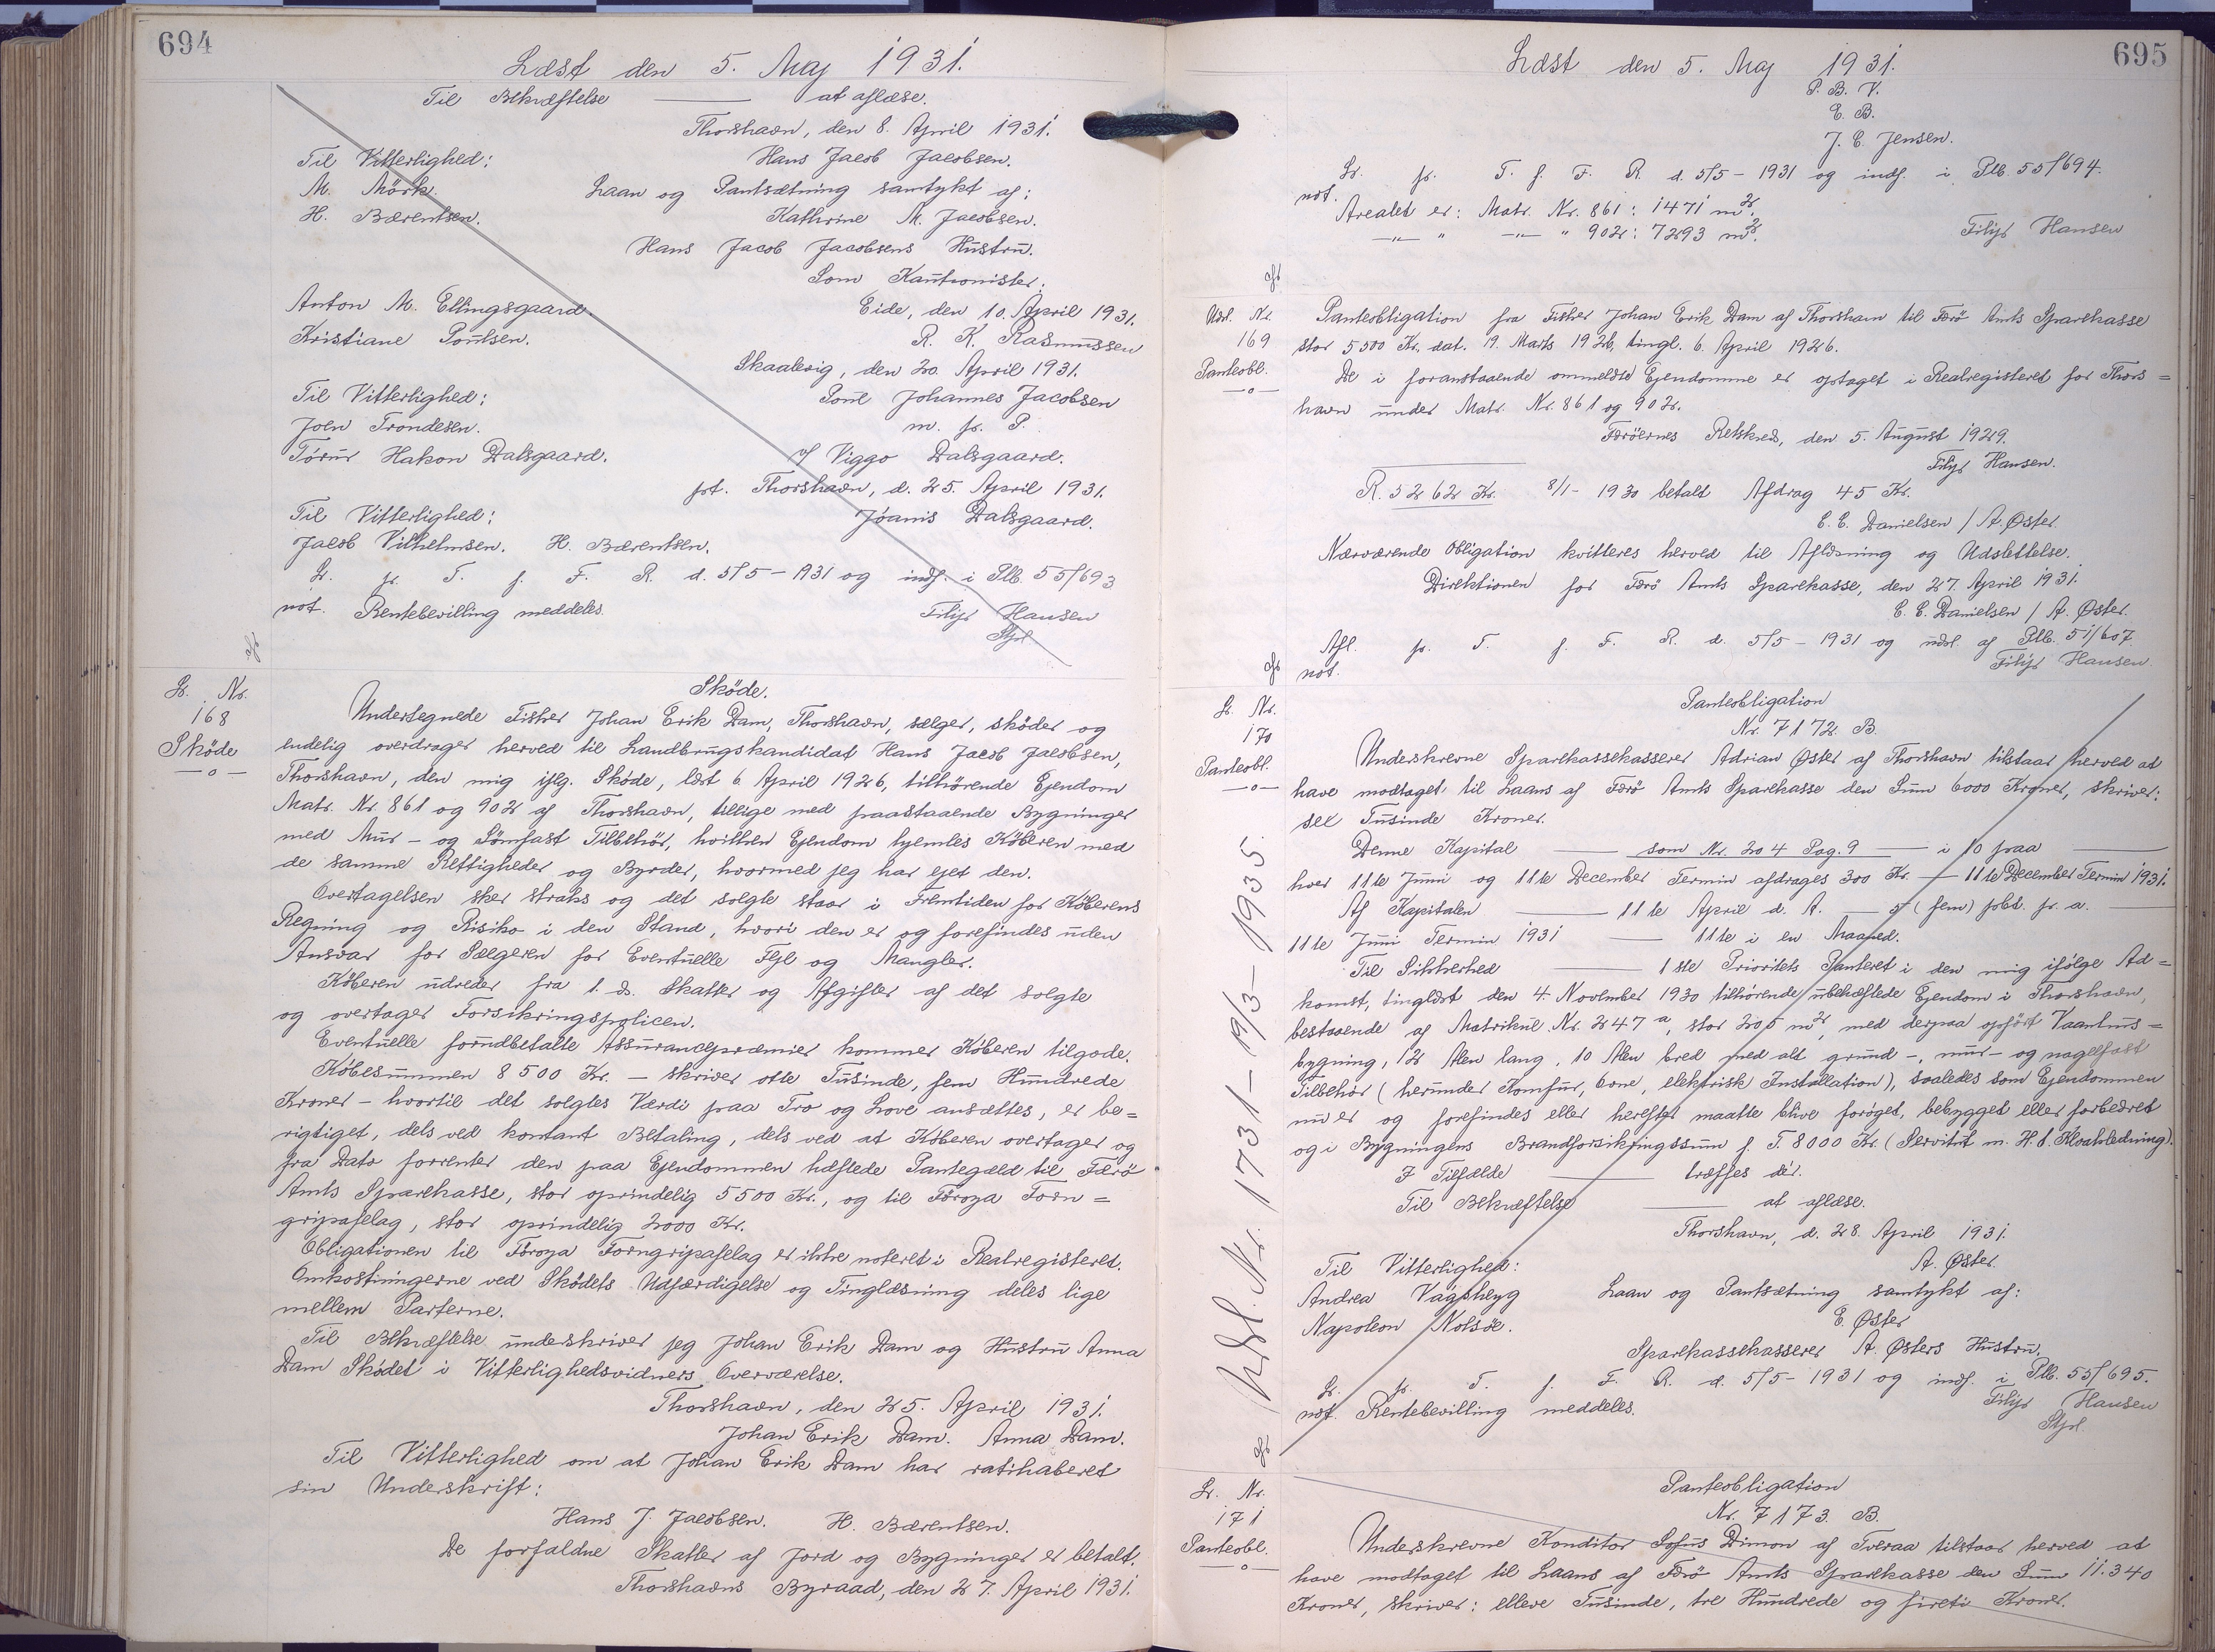 694
Læst den 5. Maj 1931.
Til Bekræftelse —— at aflæse.
Thorshavn, den 8. April 1931.
Til Vitterlighed: Hans Jacob Jacobsen.
M. Mörk. Laan og Pantsætning samtykt af:
H. Bærentsen. Kathrine M. Jacobsen.
Hans Jacob Jacobsens Hustru.
Som Kautionister:
Anton M. Ellingsgaard. Eide, den 10. April 1931.
Kristiane Poulsen. R. K. Rasmussen
Skaalevig, den 20. April 1931.
Til Vitterlighed: Poul Johannes Jacobsen
Joen Trondesen. m. p. P.
Tórur Hakon Dalsgaard. v/ Viggo Dalsgaard.
pt. Thorshavn, d. 25. April 1931.
Til Vitterlighed: Jóanis Dalsgaard.
Jacob Vilhelmsen. H. Bærentsen.
L. p. T. f. F. R. d. 5/5-1931 og indf. i Plb. 55/693
not. Rentebevilling meddeles. Filip Hansen
Stpl.
L. Nr.
168
Sköde
—o—
Sköde.
Undertegnede Fisker Johan Erik Dam, Thorshavn, sælger, sköder og
endelig overdrager herved til Landbrugskandidat Hans Jacob Jacobsen,
Thorshavn, den mig iflg. Sköde, læst 6. April 1926, tilhörende Ejendom
Matr. Nr. 861 og 902 af Thorshavn, tillige med paastaaende Bygninger
med Mur- og Sömfast Tilbehör, hvilken Ejendom hjemles Köberen med
de samme Rettigheder og Byrder, hvormed jeg har ejet den.
Overtagelsen sker straks og det solgte staar i Fremtiden for Köberens
Regning og Risiko i den Stand, hvori den er og forefindes uden
Ansvar for Sælgeren for Eventuelle Fejl og Mangler.
Köberen udreder fra 1. ds. Skatter og Afgifter af det solgte
og overtager Forsikringspolicen.
Eventuelle forudbetalte Assurancepræmier kommer Köberen tilgode.
Köbesummen 8500 Kr. - skriver otte Tusinde, fem Hundrede
Kroner - hvortil det solgtes Værdi paa Tro og Love ansættes, er be=
rigtiget, dels ved kontant Betaling, dels ved at Köberen overtager og
fra Dato forrenter den paa Ejendommen hæftede Pantegæld til Færö
Amts Sparekasse, stor oprindelig 5500 Kr., og til Föroya Forn=
gripafelag, stor oprindelig 2000 Kr.
Obligationen til Föroya Forngripafelag er ikke noteret i Realregisteret.
Omkostningerne ved Sködets Udfærdigelse og Tinglæsning deles lige
mellem Parterne.
Til Bekræftelse underskriver jeg Johan Erik Dam og Hustru Anna
Dam Sködet i Vitterlighedsvidners Overværelse.
Thorshavn, den 25. April 1931.
Johan Erik Dam. Anna Dam.
Til Vitterlighed om at Johan Erik Dam har ratihaberet
sin Underskrift:
Hans J. Jacobsen. H. Bærentsen.
De forfaldne Skatter af Jord og Bygninger er betalt.
Thorshavns Byraad, den 27. April 1931.
695
Læst den 5. Maj 1931.
P. B. V.
E. B.
J. C. Jensen.
L. p. T. f. F. R. d. 5/5-1931 og indf. i Plb. 55/694.
not.
Arealet er: Matr. Nr. 861: 1471 m².
—"— " —"— " 902: 7293 m². Filip Hansen
Udsl. Nr.
169
Panteobl.
—o—
Panteobligation fra Fisker Johan Erik Dam af Thorshavn til Færö Amts Sparekasse
stor 5500 Kr. dat. 19. Marts 1926, tingl. 6. April 1926.
De i foranstaaende ommeldte Ejendomme er optaget i Realregisteret for Thors=
havn under Matr. Nr. 861 og 902.
Færöernes Retskreds, den 5. August 1929.
Filip Hansen.
R. 5262 Kr. 8/1-1930 betalt Afdrag 45 Kr.
C. C. Danielsen / A. Øster.
Nærværende Obligation kvitteres herved til Aflæsning og Udslettelse.
Direktionen for Færö Amts Sparekasse, den 27. April 1931.
C. C. Danielsen / A. Øster.
Afl. p. T. f. F. R. d. 5/5-1931 og udsl. af Plb. 51/607
not. Filip Hansen.
L. Nr.
170
Panteobl.
—o—
Panteobligation
Nr. 7172 B.
Underskrevne Sparekassekasserer Adrian Øster af Thorshavn tilstaar herved at
have modtaget til Laans af Færö Amts Sparekasse den Sum 6000 Kroner, skriver:
sex Tusinde Kroner.
Denne Kapital —— som Nr. 204 Pag. 9 —— i 10 paa ——
hver 11te Juni og 11te December Termin afdrages 300 Kr. — 11te December Termin 1931.
Af Kapitalen —— 11te April d. A. — 5 (fem) pCt. p. a. ——
11te Juni Termin 1931 —— 11te i en Maaned.
Til Sikkerhed —— 1ste Prioritets Panteret i den mig ifölge Ad=
komst, tinglæst den 4. November 1930 tilhörende ubehæftede Ejendom i Thorshavn,
bestaaende af Matrikul Nr. 247 a, stor 205 m², med derpaa opfört Vaanhus=
bygning, 12 Alen lang, 10 Alen bred med alt grund-, mur- og nagelfast
Tilbehör (herunder Komfur, Ovne, elektrisk Installation), saaledes som Ejendommen
nu er og forefindes eller herefter maatte blive foröget, bebygget eller forbedret
og i Bygningens Brandforsikringssum f. T. 8000 Kr. (Servitut m. H. t. Kloakledning).
I Tilfælde —— træffes dér.
Til Bekræftelse —— at aflæse.
Thorshavn, d. 28. April 1931.
Til Vitterlighed: A. Øster.
Andrea Vágsheyg Laan og Pantsætning samtykt af:
Napoleon Nolsöe. E. Øster
Sparekassekasserer A. Østers Hustru.
L. p. T. f. F. R. d. 5/5-1931 og indf. i Plb. 55/695.
not. Rentebevilling meddeles. Filip Hansen
Stpl.
Udsl. Nr. 1731 - 19/3-1935.
L. Nr.
171
Panteobl.
—o—
Panteobligation
Nr. 7173 B.
Underskrevne Konditor Sofus Dimon af Tveraa tilstaar herved at
have modtaget til Laans af Færö Amts Sparekasse den Sum 11.340
Kroner, skriver: elleve Tusinde, tre Hundrede og fireti Kroner.